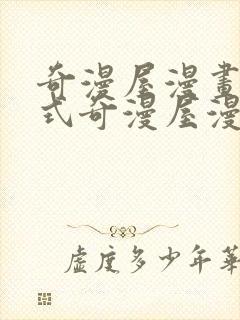 奇漫屋漫畫
式奇漫屋漫
虛度多少年華